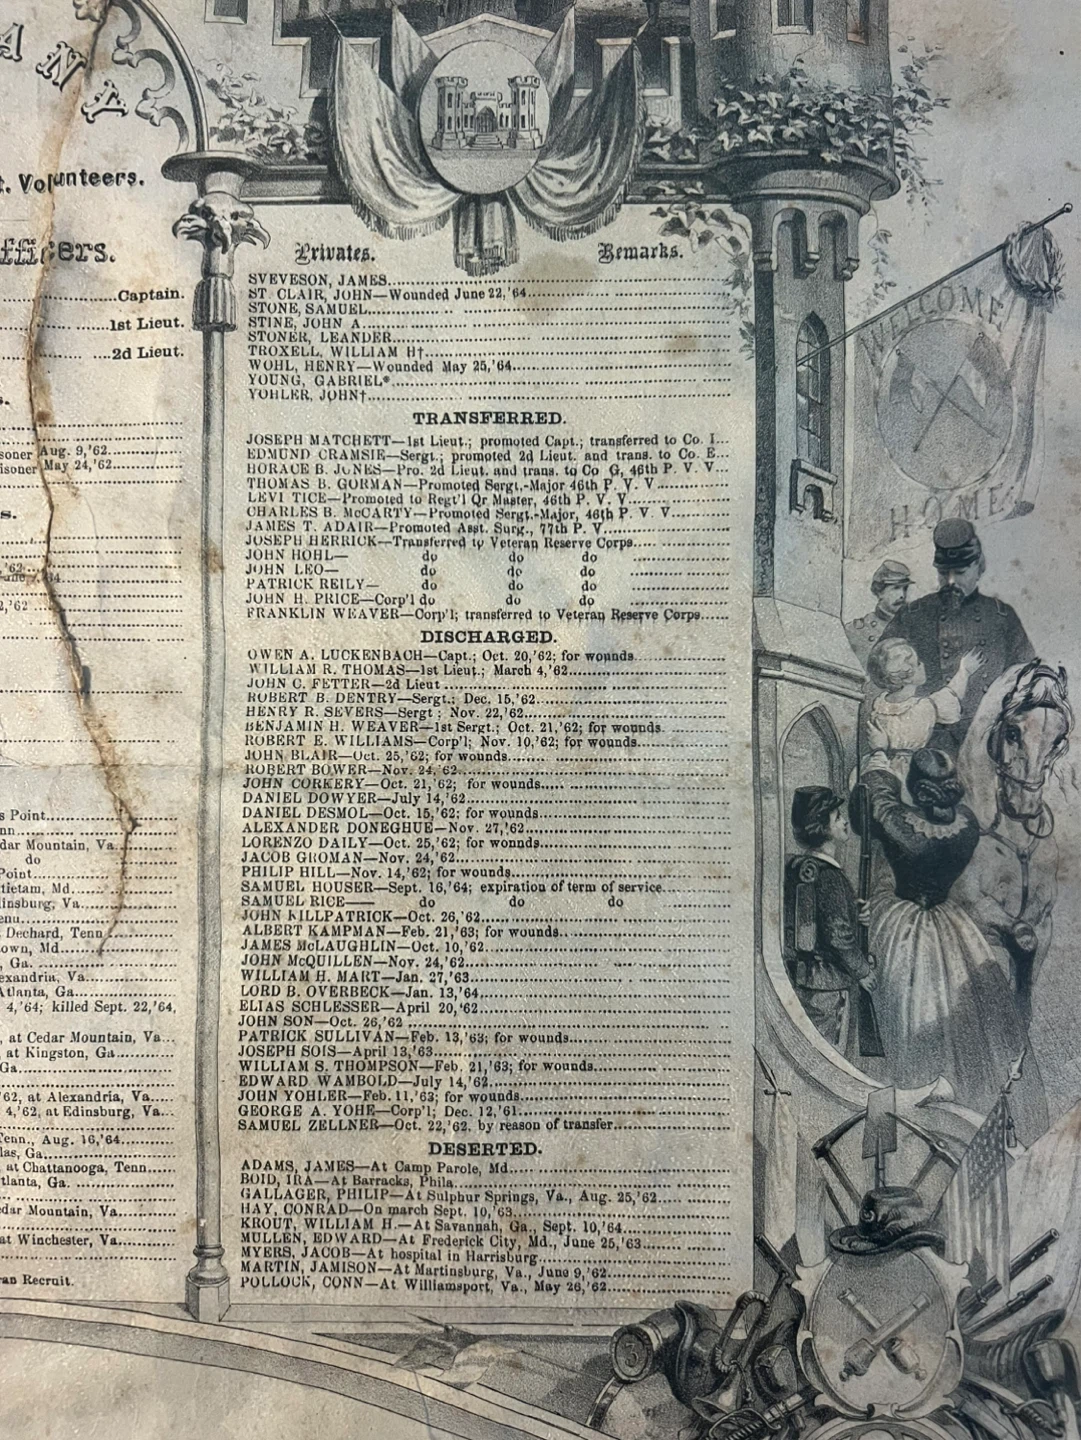 ANY
t. Volunteers.
fficers.
Captain.
1st Lieut.
2d Lieut.
s.
soner Aug. 9,'62
isoner May 24,'62
s.
,'62
June ,'64
2,'62
s Point
nn
dar Mountain, Va
do
Point
tietam, Md.
linsburg, Va.
enu
Dechard, Tenn
own, Md.
, Ga.
exandria, Va.
Atlanta, Ga.
4,'64; killed Sept. 22,'64,
, at Cedar Mountain, Va...
, at Kingston, Ga
Ga.
'62, at Alexandria, Va.
4,'62, at Edinsburg, Va...
Tenn., Aug. 16,'64
las, Ga.
at Chattanooga, Tenn
tlanta, Ga.
edar Mountain, Va.
at Winchester, Va.
ran Recruit.
Privates. Remarks.
SVEVESON, JAMES
ST. CLAIR, JOHN—Wounded June 22,'64
STONE, SAMUEL
STINE, JOHN A
STONER, LEANDER
TROXELL, WILLIAM H†
WOHL, HENRY—Wounded May 25,'64
YOUNG, GABRIEL*
YOHLER, JOHN†
TRANSFERRED.
JOSEPH MATCHETT—1st Lieut.; promoted Capt.; transferred to Co. I...
EDMUND CRAMSIE—Sergt.; promoted 2d Lieut. and trans. to Co. E...
HORACE B. JONES—Pro. 2d Lieut. and trans. to Co G, 46th P. V. V...
THOMAS B. GORMAN—Promoted Sergt.-Major 46th P. V. V
LEVI TICE—Promoted to Regt'l Qr Master, 46th P. V. V
CHARLES B. McCARTY—Promoted Sergt.-Major, 46th P. V. V
JAMES T. ADAIR—Promoted Asst. Surg., 77th P. V.
JOSEPH HERRICK—Transferred to Veteran Reserve Corps
JOHN HOHL— do do do
JOHN LEO— do do do
PATRICK REILY— do do do
JOHN H. PRICE—Corp'l do do do
FRANKLIN WEAVER—Corp'l; transferred to Veteran Reserve Corps
DISCHARGED.
OWEN A. LUCKENBACH—Capt.; Oct. 20,'62; for wounds
WILLIAM R. THOMAS—1st Lieut.; March 4,'62
JOHN C. FETTER—2d Lieut
ROBERT B. DENTRY—Sergt.; Dec. 15,'62
HENRY R. SEVERS—Sergt; Nov. 22,'62
BENJAMIN H. WEAVER—1st Sergt.; Oct. 21,'62; for wounds
ROBERT E. WILLIAMS—Corp'l; Nov. 10,'62; for wounds
JOHN BLAIR—Oct. 25,'62; for wounds
ROBERT BOWER—Nov. 24,'62
JOHN CORKERY—Oct. 21,'62; for wounds
DANIEL DOWYER—July 14,'62
DANIEL DESMOL—Oct. 15,'62; for wounds
ALEXANDER DONEGHUE—Nov. 27,'62
LORENZO DAILY—Oct. 25,'62; for wonnds
JACOB GROMAN—Nov. 24,'62
PHILIP HILL—Nov. 14,'62; for wounds
SAMUEL HOUSER—Sept. 16,'64; expiration of term of service
SAMUEL RICE— do do do
JOHN KILLPATRICK—Oct. 26,'62
ALBERT KAMPMAN—Feb. 21,'63; for wounds
JAMES McLAUGHLIN—Oct. 10,'62
JOHN McQUILLEN—Nov. 24,'62
WILLIAM H. MART—Jan. 27,'63
LORD B. OVERBECK—Jan. 13,'64
ELIAS SCHLESSER—April 20,'62
JOHN SON—Oct. 26,'62
PATRICK SULLIVAN—Feb. 13,'63; for wounds
JOSEPH SOIS—April 13,'63
WILLIAM S. THOMPSON—Feb. 21,'63; for wounds
EDWARD WAMBOLD—July 14,'62
JOHN YOHLER—Feb. 11,'63; for wounds
GEORGE A. YOHE—Corp'l; Dec. 12,'61
SAMUEL ZELLNER—Oct. 22,'62. by reason of transfer
DESERTED.
ADAMS, JAMES—At Camp Parole, Md.
BOID, IRA—At Barracks, Phila
GALLAGER, PHILIP—At Sulphur Springs, Va., Aug. 25,'62
HAY, CONRAD—On march Sept. 10,'63
KROUT, WILLIAM H.—At Savannah, Ga., Sept. 10,'64
MULLEN, EDWARD—At Frederick City, Md., June 25,'63
MYERS, JACOB—At hospital in Harrisburg
MARTIN, JAMISON—At Martinsburg, Va., June 9,'62
POLLOCK, CONN—At Williamsport, Va., May 26,'62
WELCOME
HOME
3